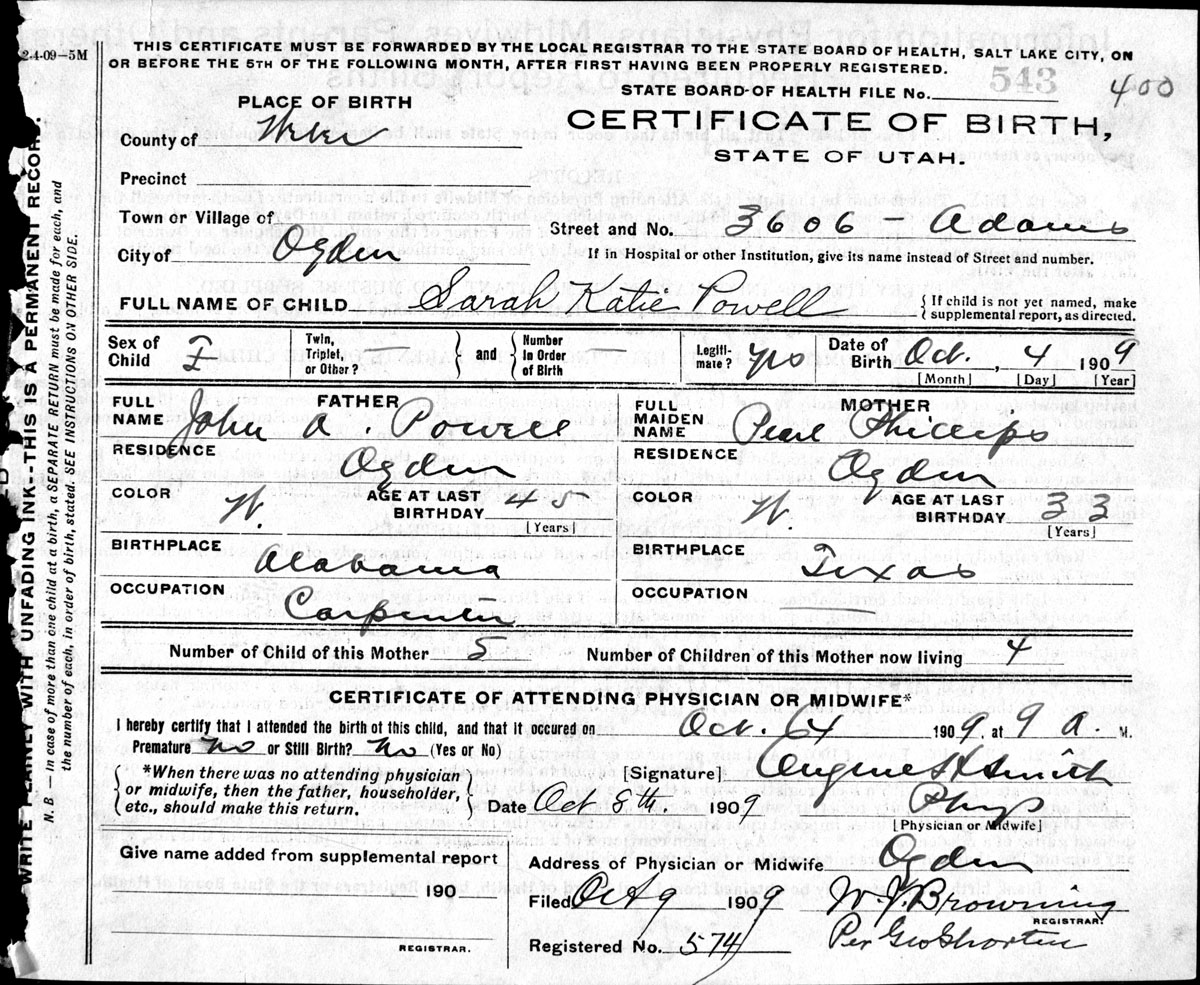 2-4-09—5M
THIS CERTIFICATE MUST BE FORWARDED BY THE LOCAL REGISTRAR TO THE STATE BOARD OF HEALTH, SALT LAKE CITY, ON
OR BEFORE THE 5TH OF THE FOLLOWING MONTH, AFTER FIRST HAVING BEEN PROPERLY REGISTERED.
STATE BOARD OF HEALTH FILE No. 543 400
PLACE OF BIRTH
CERTIFICATE OF BIRTH,
STATE OF UTAH.
County of Weber
Precinct
Town or Village of
Street and No. 3606 - Adams
City of Ogden
If in Hospital or other Institution, give its name instead of Street and number.
FULL NAME OF CHILD Sarah Katie Powell
{If child is not yet named, make
supplemental report, as directed.
Sex of Child F
Twin, Triplet, or Other? — } and { Number in Order of Birth —
Legitimate? yes
Date of Birth Oct. , 4 1909
[Month] [Day] [Year]
FATHER
FULL NAME John A. Powell
RESIDENCE Ogden
COLOR W. AGE AT LAST BIRTHDAY 45
[Years]
BIRTHPLACE Alabama
OCCUPATION Carpenter
MOTHER
FULL MAIDEN NAME Pearl Phillips
RESIDENCE Ogden
COLOR W. AGE AT LAST BIRTHDAY 33
[Years]
BIRTHPLACE Texas
OCCUPATION —
Number of Child of this Mother 5 Number of Children of this Mother now living 4
CERTIFICATE OF ATTENDING PHYSICIAN OR MIDWIFE*
I hereby certify that I attended the birth of this child, and that it occured on Oct. 4 1909, at 9 a. M.
Premature no or Still Birth? No (Yes or No)
{*When there was no attending physician
or midwife, then the father, householder,
etc., should make this return.}
[Signature] Eugene H Smith
Date Oct 8th. 1909 Phys
[Physician or Midwife]
Give name added from supplemental report
190
REGISTRAR.
Address of Physician or Midwife Ogden
Filed Oct 9 1909 W. J. Browning
REGISTRAR.
Registered No. 574 Per Geo Shorten
WRITE PLAINLY WITH UNFADING INK—THIS IS A PERMANENT RECORD.
N. B.—In case of more than one child at a birth, a SEPARATE RETURN must be made for each, and
the number of each, in order of birth, stated. SEE INSTRUCTIONS ON OTHER SIDE.